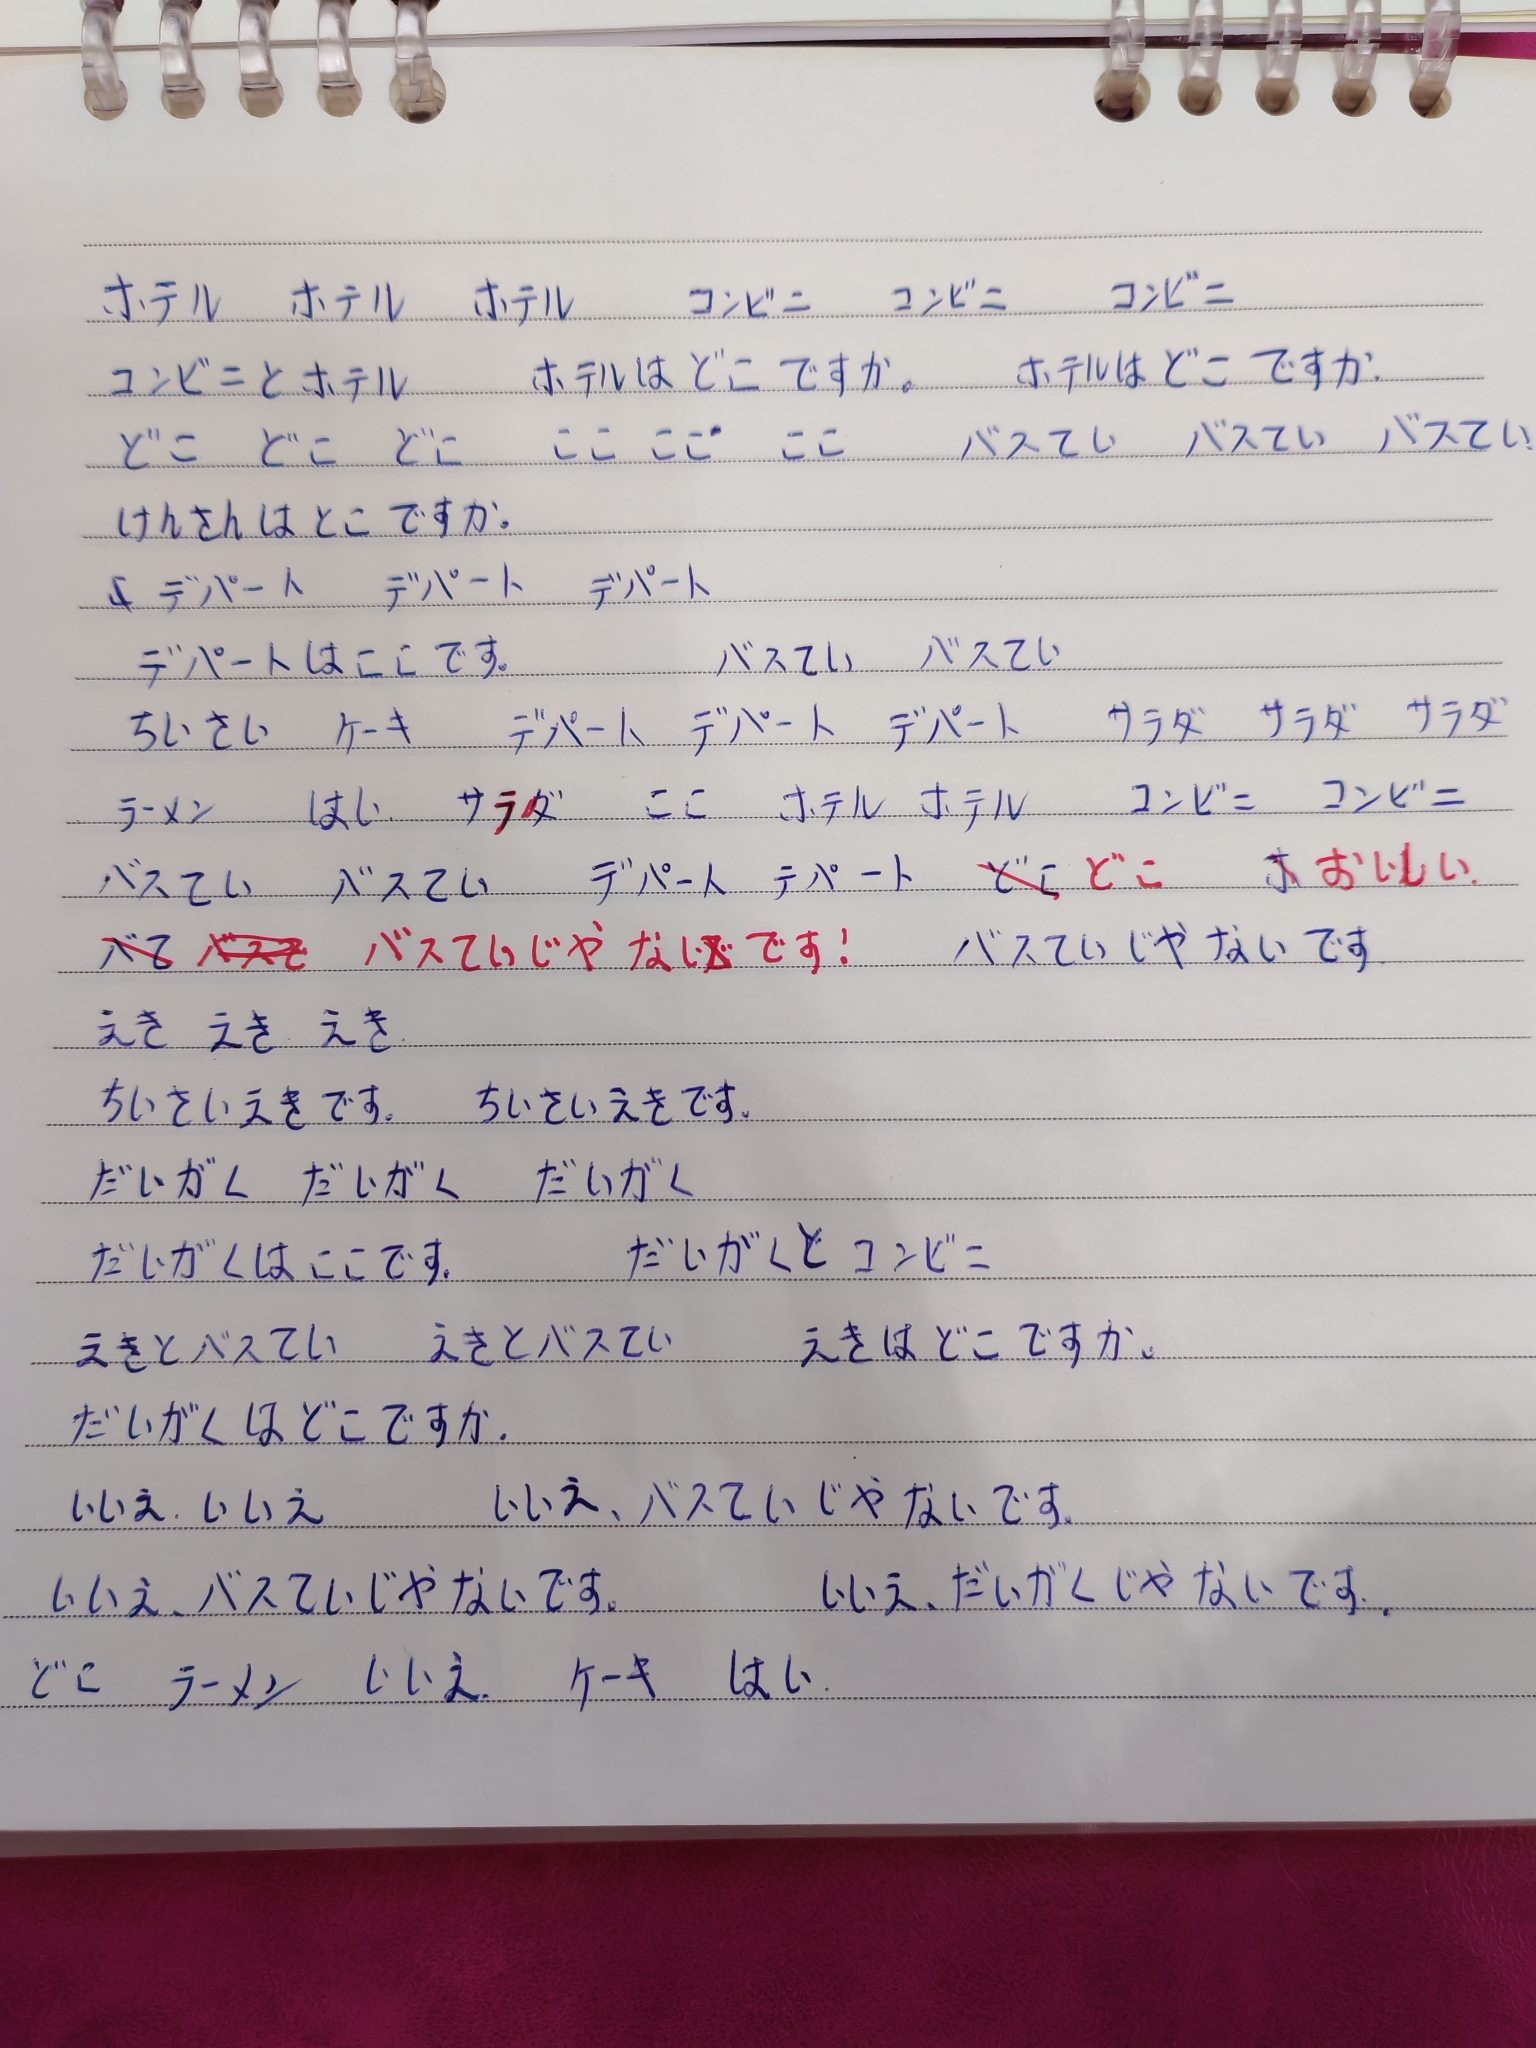 ホテル ホテル ホテル コンビニ コンビニ コンビニ
コンビニとホテル ホテルはどこですか。 ホテルはどこですか.
どこ どこ どこ ここ ここ ここ バスてい バスてい バスてい.
けんさんはとこですか。
デパート デパート デパート
デパートはここです。 バスてい バスてい
ちいさい ケーキ デパート デパート デパート サラダ サラダ サラダ
ラーメン はい. サラダ ここ ホテル ホテル コンビニ コンビニ
バスてい バスてい デパート テパート どこ どこ ホ おいしい.
バて バスて バスていじゃないです! バスていじゃないです.
えき えき えき.
ちいさいえきです。 ちいさいえきです。
だいがく だいがく だいがく
だいがくはここです。 だいがくと コンビニ
えきとバスてい えきとバスてい えきはどこですか。
だいがくはどこですか.
いいえ. いいえ いいえ、バスていじゃないです。
いいえ、バスていじゃないです。 いいえ、だいがくじゃないです.
どこ ラーメン いいえ. ケーキ はい.